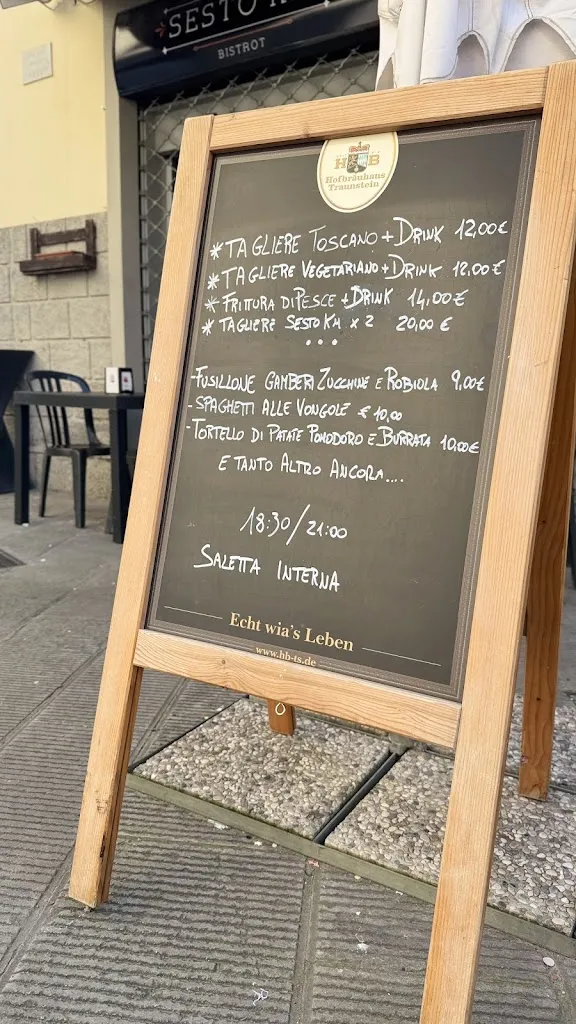 SESTO
BISTROT
HB
Hofbräuhaus
Traunstein
* TAGLIERE TOSCANO + DRINK 12,00€
* TAGLIERE VEGETARIANO + DRINK 12,00€
* FRITTURA DI PESCE + DRINK 14,00€
* TAGLIERE SESTO KM x 2 20,00 €
...
- FUSILLONE GAMBERI ZUCCHINE E ROBIOLA 9,00€
- SPAGHETTI ALLE VONGOLE € 10,00
- TORTELLO DI PATATE POMODORO E BURRATA 10,00€
E TANTO ALTRO ANCORA....
18:30/21:00
SALETTA INTERNA
Echt wia's Leben
www.hb-ts.de